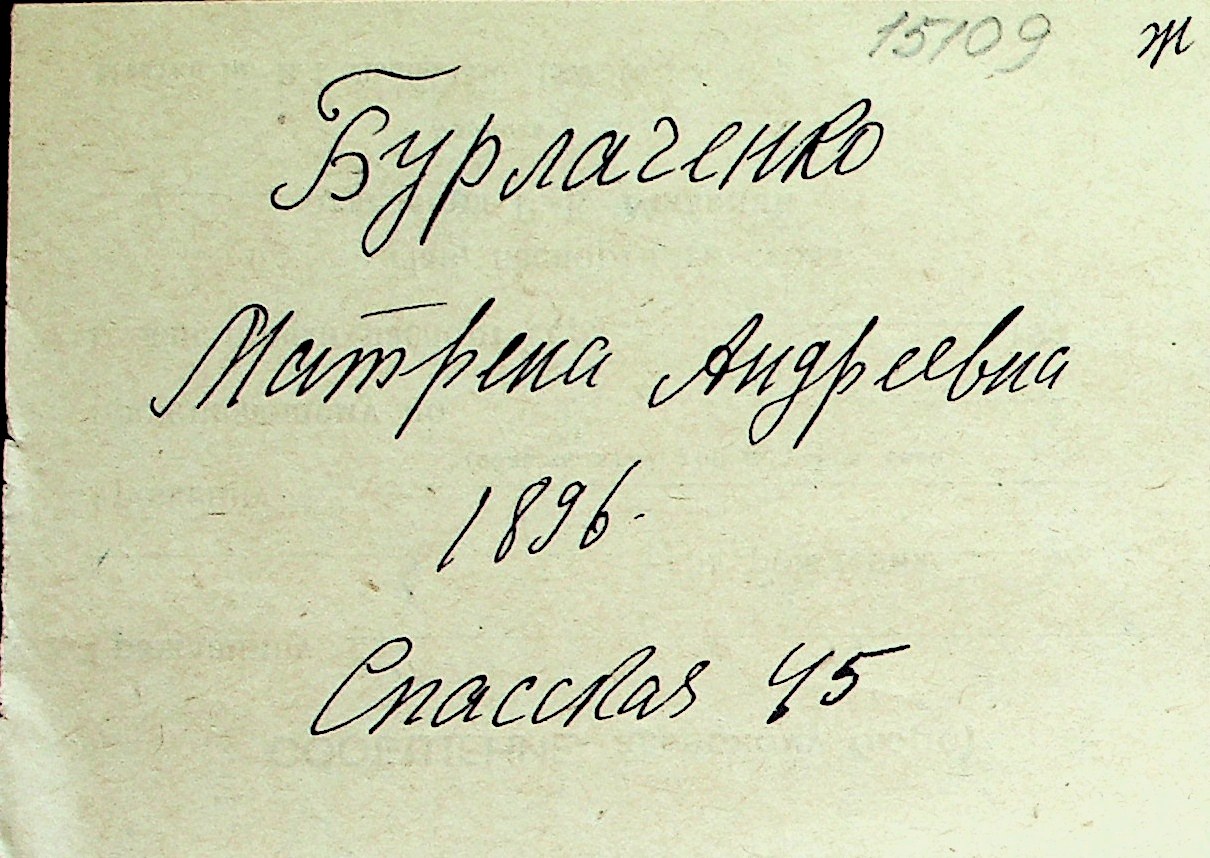 15109 ж
Бурлаченко
Матрена Андреевна
1896.
Спасская 45